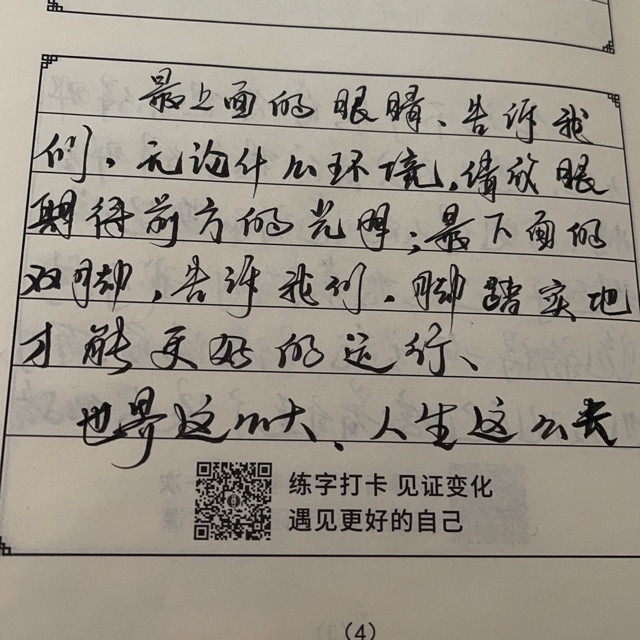 最上面的眼睛、告诉我
们，无论什么环境，请放眼
期待前方的光明；最下面的
双脚，告诉我们，脚踏实地
才能更好的运行、
世界这么大、人生这么长
练字打卡 见证变化
遇见更好的自己
（4）